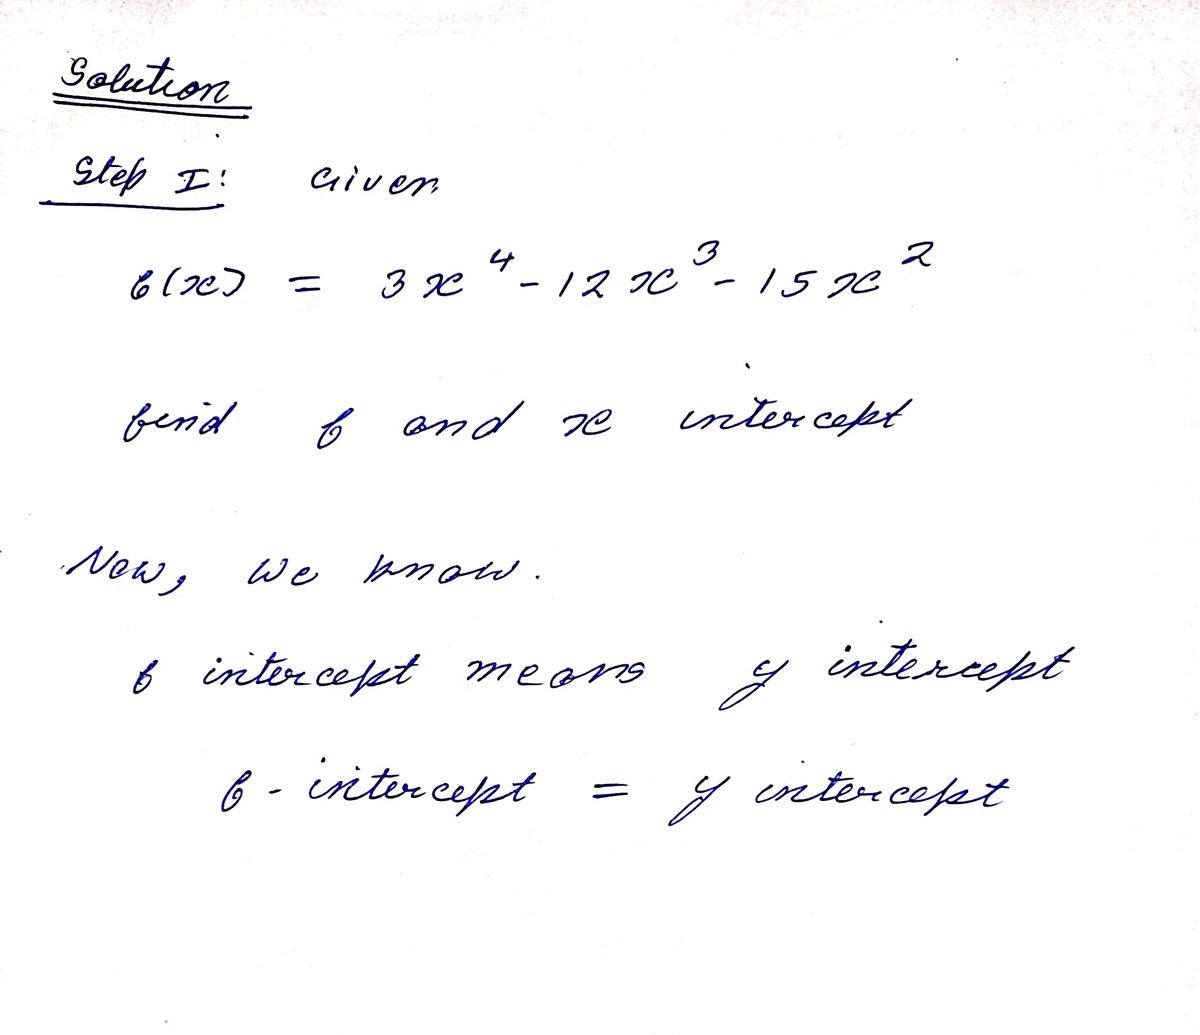 Solution
Step I: Given
f(x) = 3x⁴ - 12x³ - 15x²
find f and x intercept
Now, we know.
f intercept means y intercept
f - intercept = y intercept